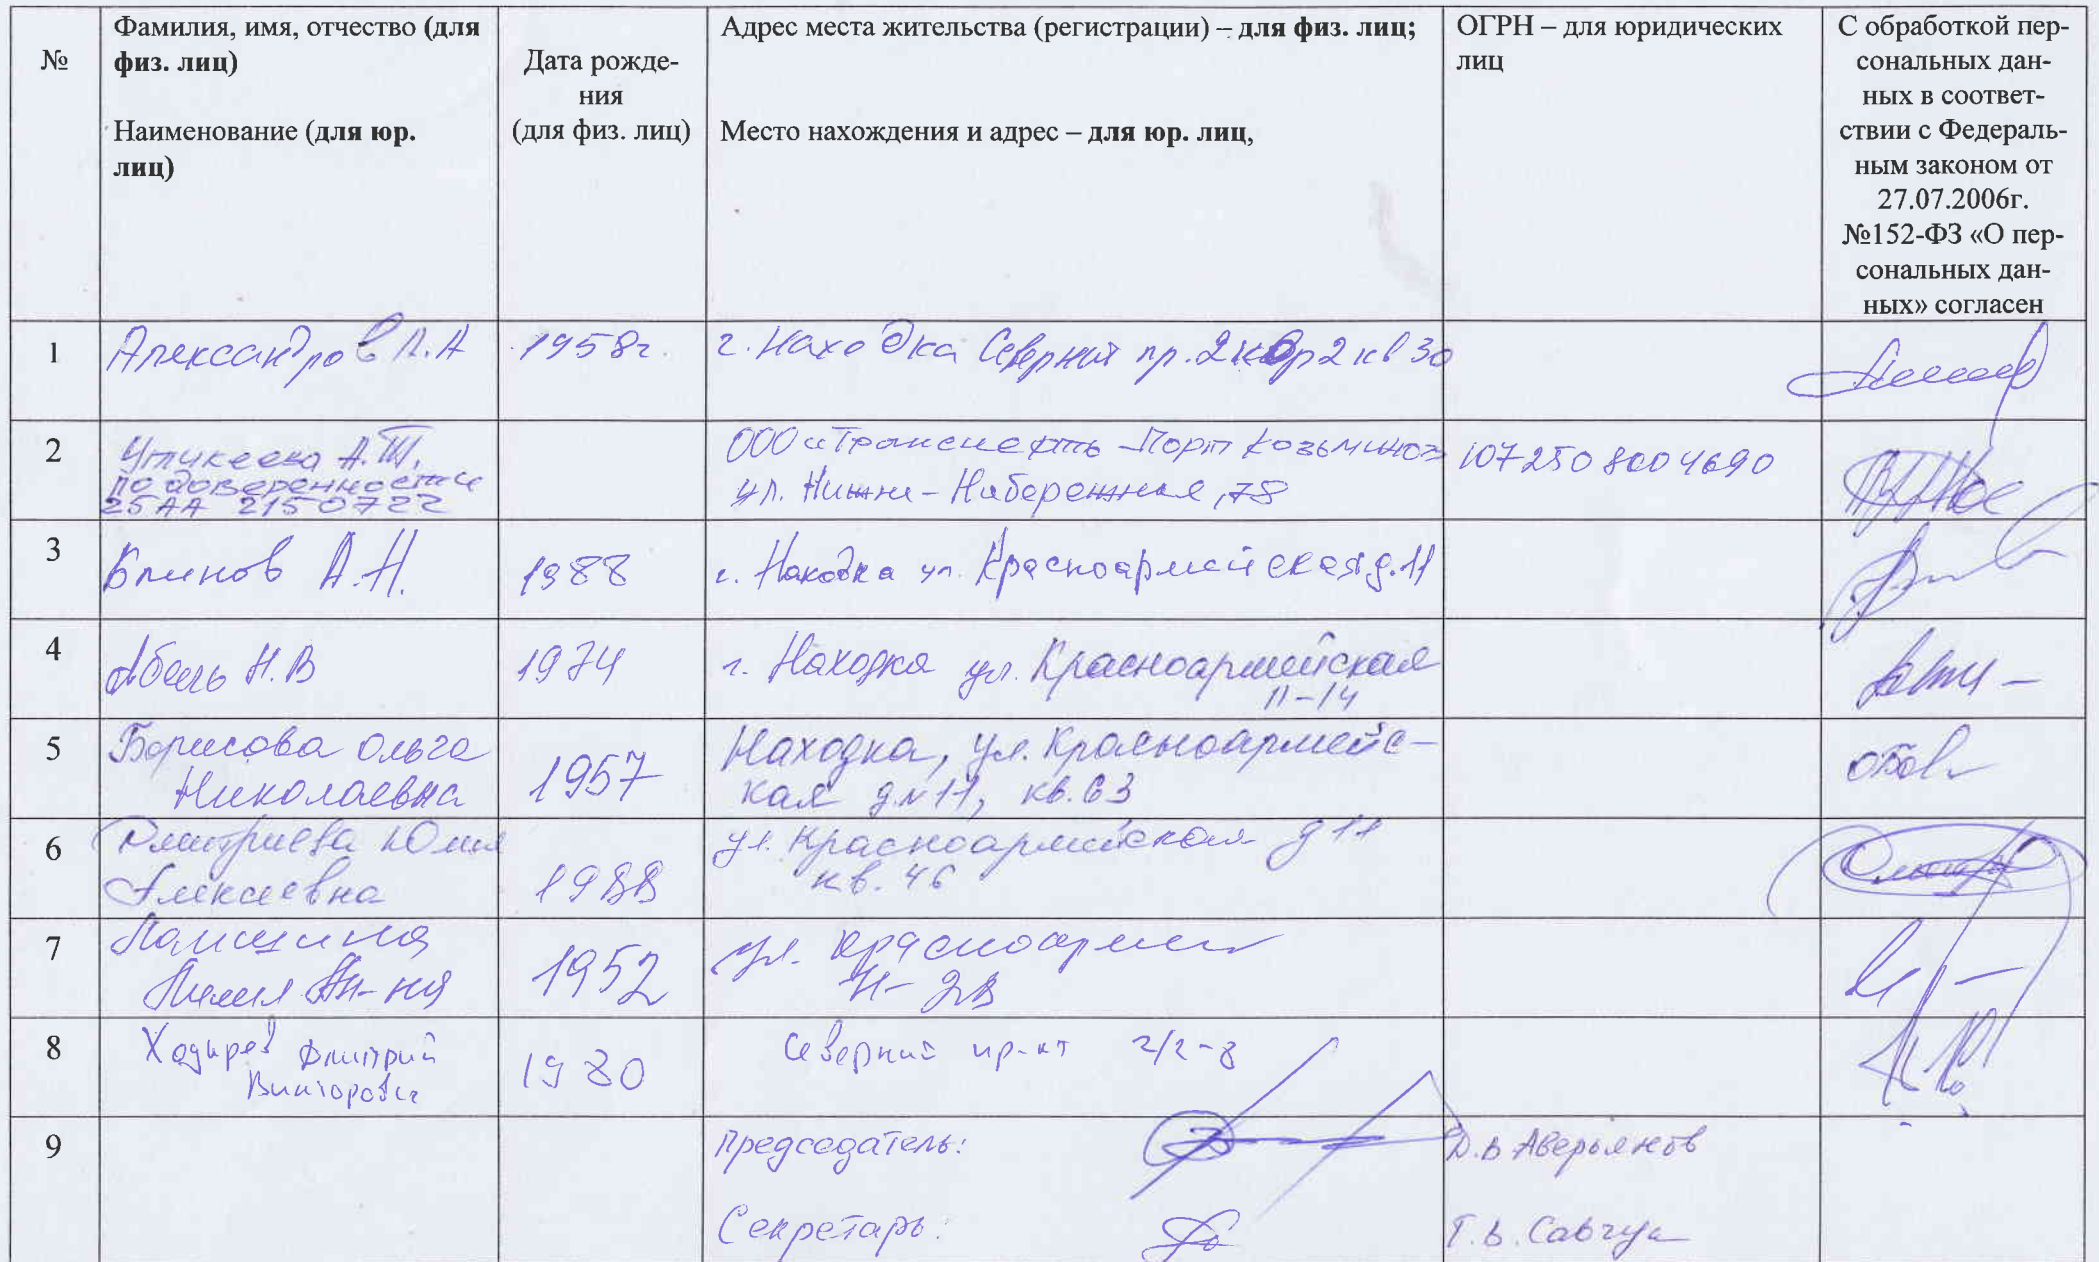 №
Фамилия, имя, отчество (для
физ. лиц)
Наименование (для юр.
лиц)
Дата рожде-
ния
(для физ. лиц)
Адрес места жительства (регистрации) – для физ. лиц;
Место нахождения и адрес – для юр. лиц,
ОГРН – для юридических
лиц
С обработкой пер-
сональных дан-
ных в соответ-
ствии с Федераль-
ным законом от
27.07.2006г.
№152-ФЗ «О пер-
сональных дан-
ных» согласен
1
Александров А.А
1958г.
г. Находка Северный пр. 2 кв 30
2
А.Ш.
по доверенности
25АА 2150722
ООО «Транснефть – Порт Козьмино»
ул. Нижне-Набережная, 78
1072508004690
3
Блинов А.Н.
1988
г. Находка ул. Красноармейская д.11
4
Абель Н.В
1974
г. Находка ул. Красноармейская
11-14
5
Борисова Ольга
Николаевна
1957
Находка, ул. Красноармейс-
кая д.№11, кв. 63
6
Дмитриева Юлия
Алексеевна
1988
ул. Красноармейская д 11
кв. 46
7
Лилия
1952
ул. Красноармей
8
Хадырев Дмитрий
Викторович
1980
Северный пр-кт 2/2-8
9
Председатель:
Д.В Аверьянов
Секретарь:
Т.В. Савчук